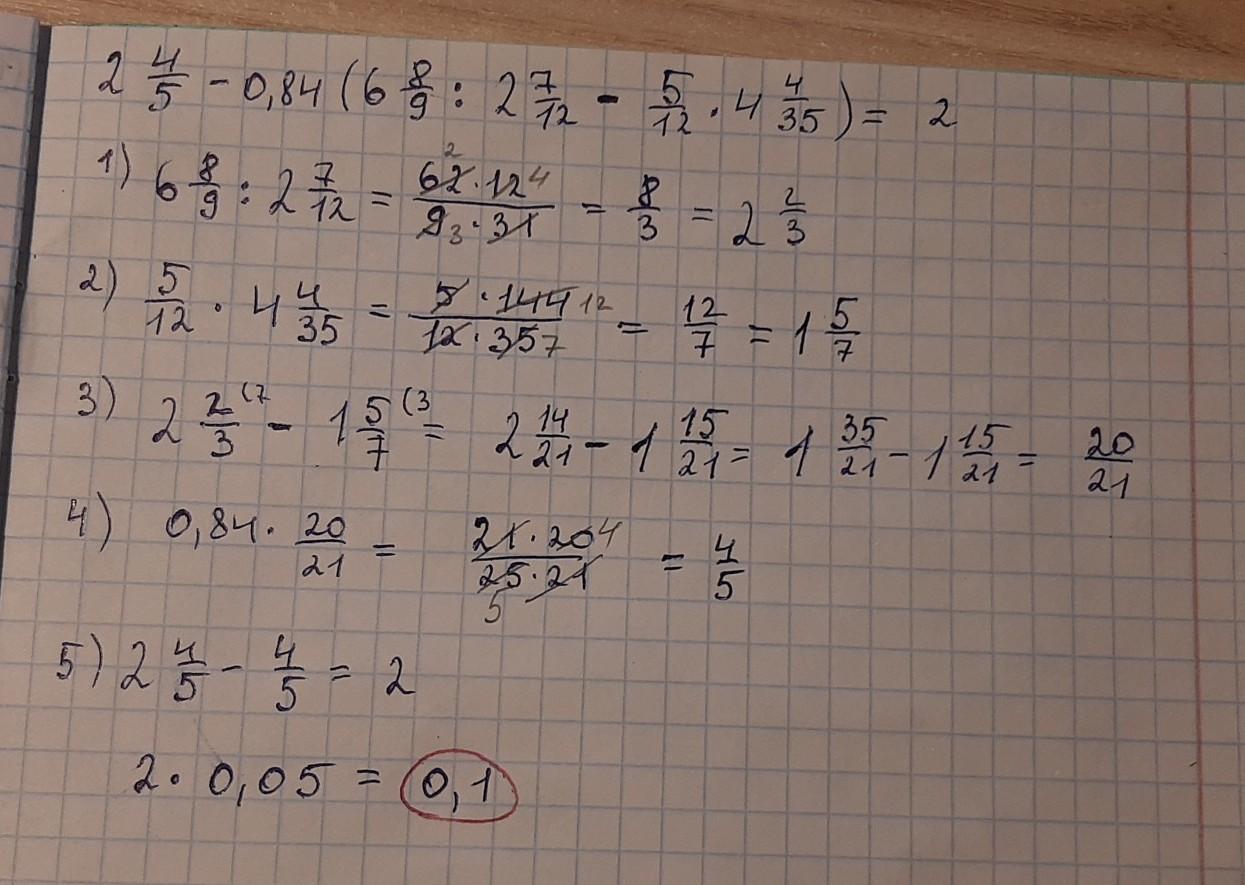 2 4/5 - 0,84 (6 8/9 : 2 7/12 - 5/12 · 4 4/35) = 2
1) 6 8/9 : 2 7/12 = 62 2 · 12 4 / 9 3 · 31 = 8/3 = 2 2/3
2) 5/12 · 4 4/35 = 5 · 144 12 / 12 · 35 7 = 12/7 = 1 5/7
3) 2 2/3 (7 - 1 5/7 (3 = 2 14/21 - 1 15/21 = 1 35/21 - 1 15/21 = 20/21
4) 0,84 · 20/21 = 21 · 20 4 / 25 5 · 21 = 4/5
5) 2 4/5 - 4/5 = 2
2 · 0,05 = 0,1